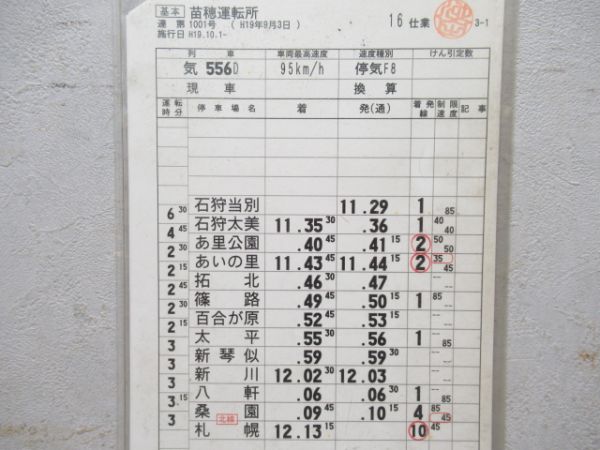 基本 苗穂運転所
達 票 1001号 ( H19年9月3日 ) 16 仕業 3-1
施行日 H19.10.1-
列 車 車両最高速度 速度種別 けん引定数
気 556D 95km/h 停気F8
現 車 換 算
運転時分 停 車 場 名 着 発(通) 着発線 制限速度 記 事
石狩当別 11.29 1 85
6 30
石狩太美 11.35 30 .36 1 40 40
4 45
あ里公園 .40 45 .41 15 2 50 50
2 30
あいの里 11.43 45 11.44 15 2 35 45
2 15
拓 北 .46 30 .47
2 45
篠 路 .49 45 .50 15 1 85
2 30
百合が原 .52 45 .53 15
2 15
太 平 .55 .56 1 85
3
新 琴 似 .59 .59 30
3
新 川 12.02 30 12.03
3
八 軒 .06 .06 30 1
3 15
桑 園 北線 .09 45 .10 15 4 85 45
3
札 幌 12.13 15 10 45